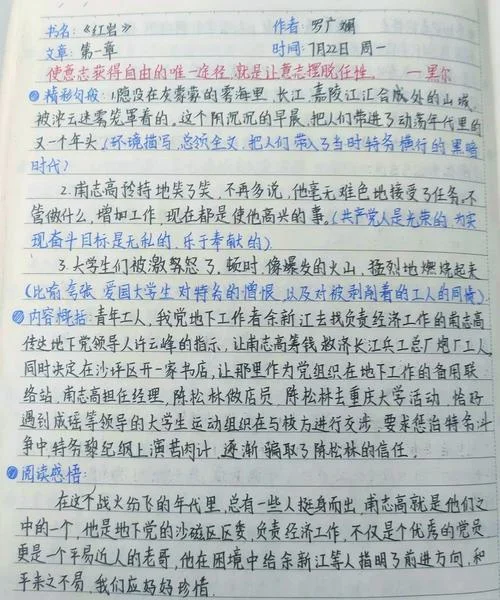 书名:《红岩》 作者:罗广斓
文章:第一章 时间:7月22日 周一
使意志获得自由的唯一途径,就是让意志摆脱任性。 —黑尔
精彩句段:1.隐没在灰蒙蒙的雾海里,长江、嘉陵江汇合处外的山城,
被浓云迷雾笼罩着。这个阴沉沉的早晨,把人们带进了动荡年代里的
又一个年头。(环境描写,总领全文,把人们带入了当时特务横行的黑暗
时代)
2.甫志高矜持地笑了笑,不再多说,他毫无难色地接受了任务。不
管做什么,增加工作,现在都是使他高兴的事。(共产党人是光荣的,为实
现奋斗目标是无私的,乐于奉献的)
3.大学生们被激怒了,顿时,像爆发的火山,猛烈地燃烧起来
(比喻夸张,爱国大学生对特务的憎恨,以及对被剥削着的工人的同情)
内容概括:青年工人,我党地下工作者余新江去找负责经济工作的甫志高
传达地下党领导人许云峰的指示,让甫志高筹钱救济长江兵工总厂炮厂工人,
同时决定在沙坪区开一家书店,让那里作为党组织在地下工作的备用联
络站,甫志高担任经理,陈松林做店员,陈松林去重庆大学活动,恰好
遇到成瑶等领导的大学生运动组织在与校方进行交涉,要求惩治特务,斗
争中,特务黎纪纲上演苦肉计,逐渐骗取了陈松林的信任。
阅读感悟:
在这个战火纷飞的年代里,总有一些人挺身而出,甫志高就是他们之
中的一个,他是地下党的沙磁区区委,负责经济工作,不仅是个优秀的党员
更是一个平易近人的老哥,他在困境中给余新江等人指明了前进方向,和
平来之不易,我们应好好珍惜。